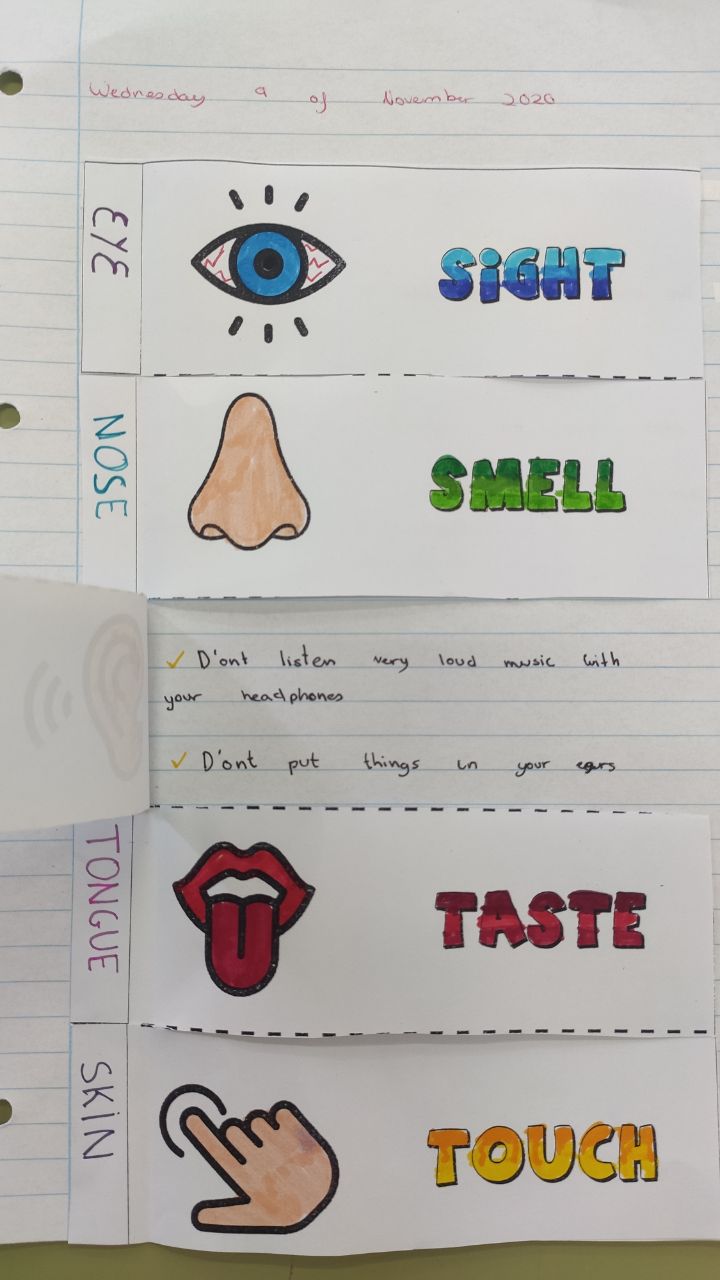 Wednesday 9 of November 2020
EYE
SiGHT
NOSE
SMELL
✓ D'ont listen very loud music with
your headphones
✓ D'ont put things in your ears
TONGUE
TASTE
SKiN
TOUCH